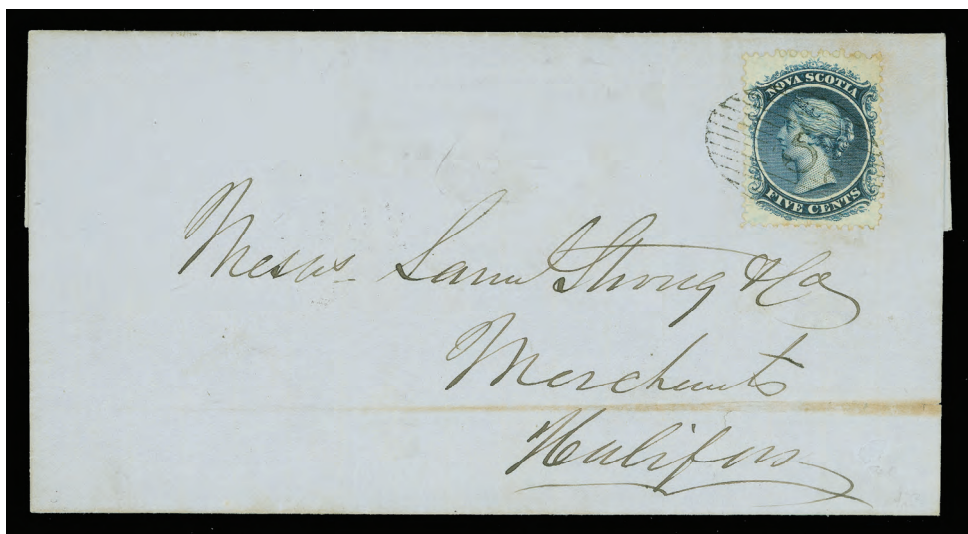 NOVA SCOTIA
FIVE CENTS
Messrs. Saml Strong & Co
Merchants
Halifax